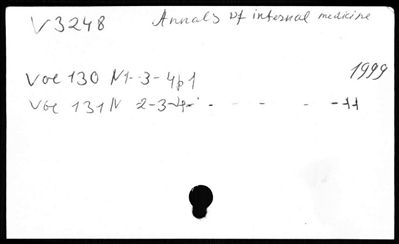 V3248 Annals of internal medicine
Voe 130 N1-3-4p1 1999
Voe 131 N 2-3-4- - - - - -11